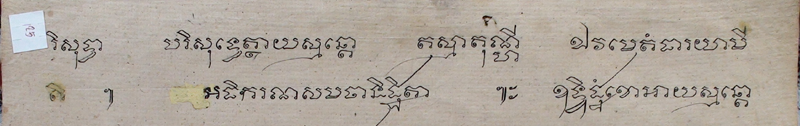 រិសុទ្ធា បរិសុទ្ធេត្ថាយស្មន្តោ តស្មាតុណ្ហី ឯវមេតំធារយាមិ
៕ អធិករណសមថានិដ្ឋិតា ៕ះ ឧទ្ទិដ្ឋំខោអាយស្មន្តោ